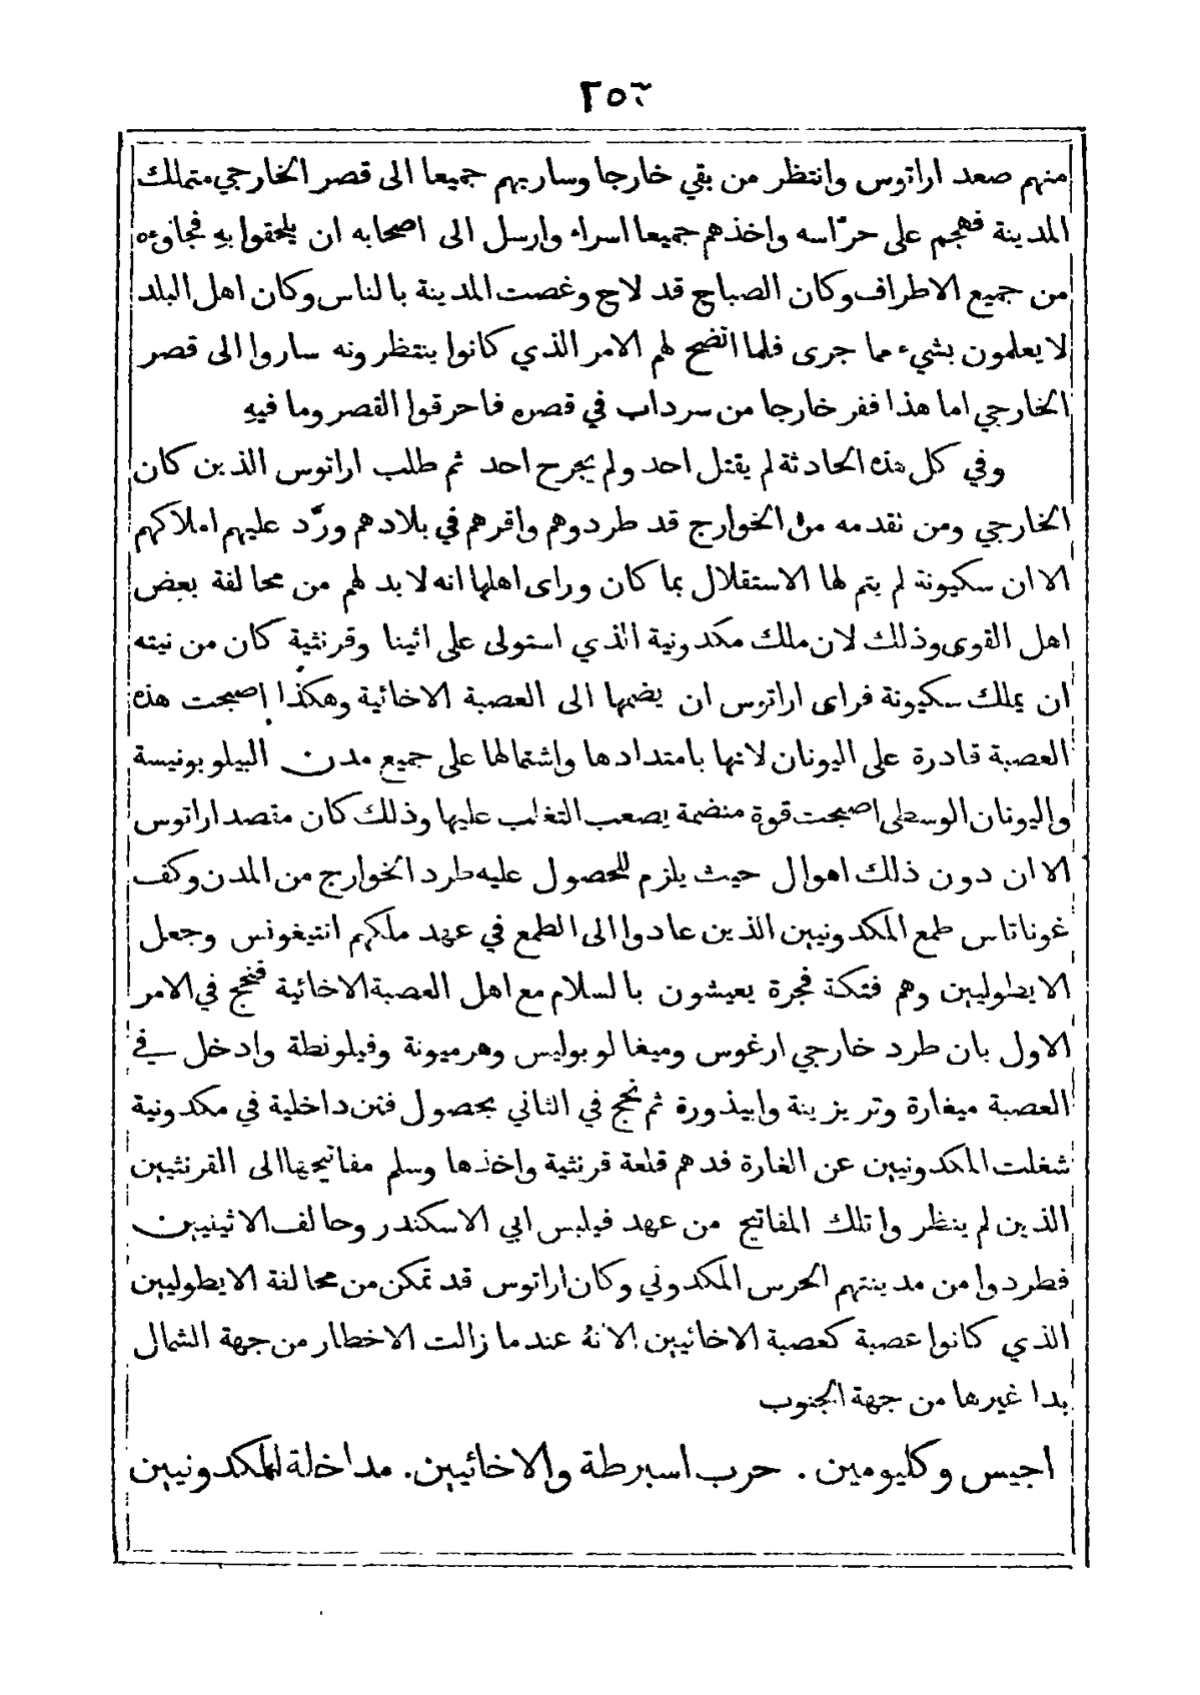 منهم صعد اراتوس وانتظر من بقي خارجا وساربهم جميعا الى قصر الخارجي متملك
المدينة فهجم على حرّاسه واخذهم جميعا اسراء وارسل الى اصحابه ان يلحقوا بهِ فجاؤه
من جميع الاطراف وكان الصباح قد لاح وغصت المدينة بالناس وكان اهل البلد
لا يعلمون بشيء مما جرى فلما اتضح لهم الامر الذي كانوا ينتظرونه ساروا الى قصر
الخارجي اما هذا ففر خارجا من سرداب في قصره فاحرقوا القصر وما فيهِ
وفي كل هذه الحادثة لم يقتل احد ولم يجرح احد ثم طلب اراتوس الذين كان
الخارجي ومن تقدمه من الخوارج قد طردوهم واقرهم في بلادهم وردّ عليهم املاكهم
الا ان سكيونة لم يتم لها الاستقلال بما كان وراى اهلها انه لا بد لهم من محالفة بعض
اهل القوى وذلك لان ملك مكدونية الذي استولى على اثينا وقرنثية كان من نيته
ان يملك سكيونة فراى اراتوس ان يضمها الى العصبة الاخائية وهكذا اصبحت هذه
العصبة قادرة على اليونان لانها بامتدادها واشتمالها على جميع مدن البيلوبونيسة
واليونان الوسطى اصبحت قوة منضمة يصعب التغلب عليها وذلك كان مقصد اراتوس
الا ان دون ذلك اهوال حيث يلزم للحصول عليه طرد الخوارج من المدن وكف
غوناتاس طمع المكدونيين الذين عادوا الى الطمع في عهد ملكهم انتيغونس وجعل
الايطوليين وهم فتكة فجرة يعيشون بالسلام مع اهل العصبة الاخائية فنجح في الامر
الاول بان طرد خارجي ارغوس وميغالوبوليس وهرميونة وفيلونطة وادخل في
العصبة ميغارة وتريزينة وابيذورة ثم نجح في الثاني بحصول فتن داخلية في مكدونية
شغلت المكدونيين عن الغارة فدهم قلعة قرنثية واخذها وسلم مفاتيحها الى القرنثيين
الذين لم ينظروا تلك المفاتيح من عهد فيلبس ابي الاسكندر وحالف الاثينيين
فطردوا من مدينتهم الحرس المكدوني وكان اراتوس قد تمكن من محالفة الايطوليين
الذي كانوا عصبة كعصبة الاخائيين الا انهُ عندما زالت الاخطار من جهة الشمال
بدا غيرها من جهة الجنوب
اجيس وكليومين . حرب اسبرطة والاخائيين. مداخلة المكدونيين